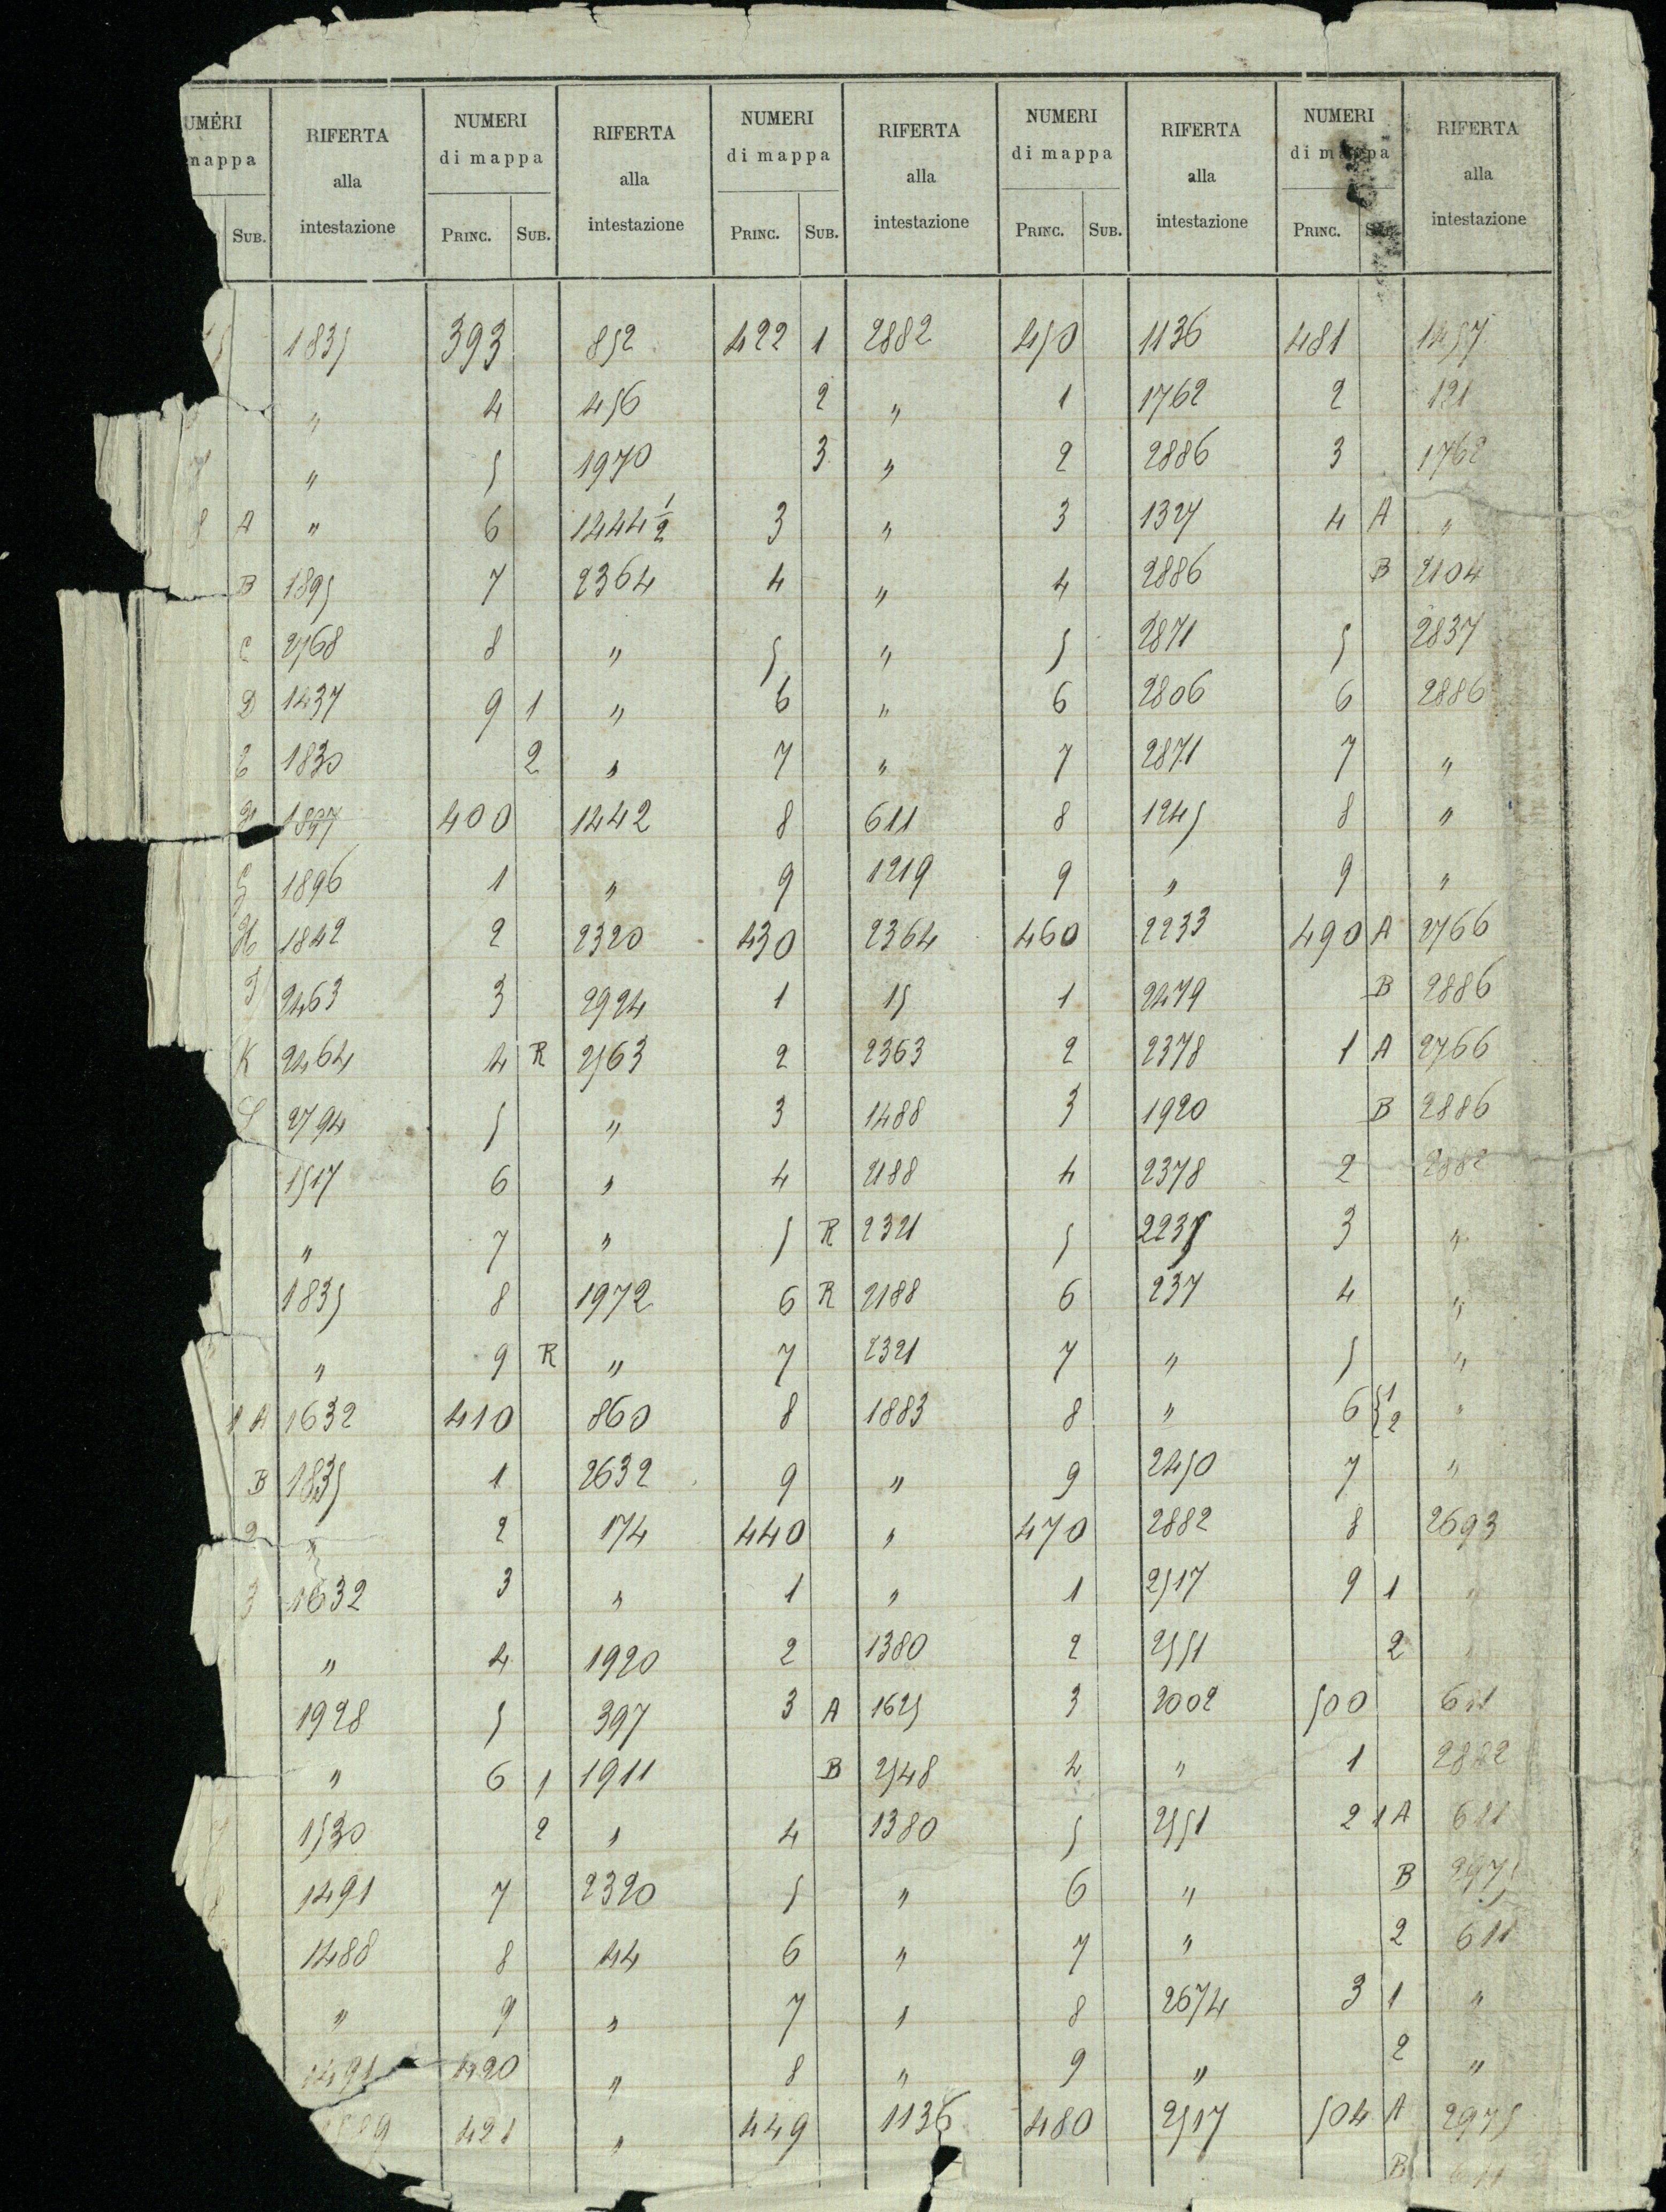 UMERI RIFERTA NUMERI RIFERTA NUMERI RIFERTA NUMERI RIFERTA NUMERI RIFERTA
mappa alla di mappa alla di mappa alla di mappa alla di mappa alla
SUB. intestazione PRINC. SUB. intestazione PRINC. SUB. intestazione PRINC. SUB. intestazione PRINC. SUB. intestazione
1835 393 852 422 1 2882 450 1136 481 1457
" 4 456 2 " 1 1762 2 121
7 " 5 1970 3 " 2 2886 3 1762
8 A " 6 1444 1/2 3 " 3 1327 4 A "
B 1895 7 2364 4 " 4 2886 B 2104
C 2568 8 " 5 " 5 2871 5 2837
D 1437 9 1 " 6 " 6 2806 6 2886
E 1830 2 " 7 " 7 2871 7 "
1897 400 1442 8 611 8 1245 8 "
G 1896 1 " 9 1219 9 " 9 "
H 1842 2 2320 430 2364 460 2233 490 A 2766
I 2463 3 2924 1 15 1 2479 B 2886
K 2464 4 R 2563 2 2363 2 2378 1 A 2766
L 2794 5 " 3 1488 3 1920 B 2886
1517 6 " 4 2188 4 2378 2 2882
" 7 " 5 R 2321 5 2235 3 "
1835 8 1972 6 R 2188 6 237 4 "
" 9 R " 7 2321 7 " 5 "
1 A 1632 410 860 8 1883 8 " 6 { 1 2 "
B 1835 1 2632 9 " 9 2450 7 "
2 " 2 174 440 " 470 2882 8 2693
3 1632 3 " 1 " 1 2517 9 1 "
" 4 1920 2 1380 2 2551 2 "
1928 5 397 3 A 1625 3 2002 500 611
" 6 1 1911 B 2548 4 " 1 2882
1530 2 " 4 1380 5 2551 2 1 A 611
8 1491 7 2320 5 " 6 " B 2975
1488 8 44 6 " 7 " 2 611
" 9 " 7 " 8 2674 3 1 "
1491 420 " 8 " 9 " 2 "
421 " 449 1136 480 2517 504 A 2975
B 611